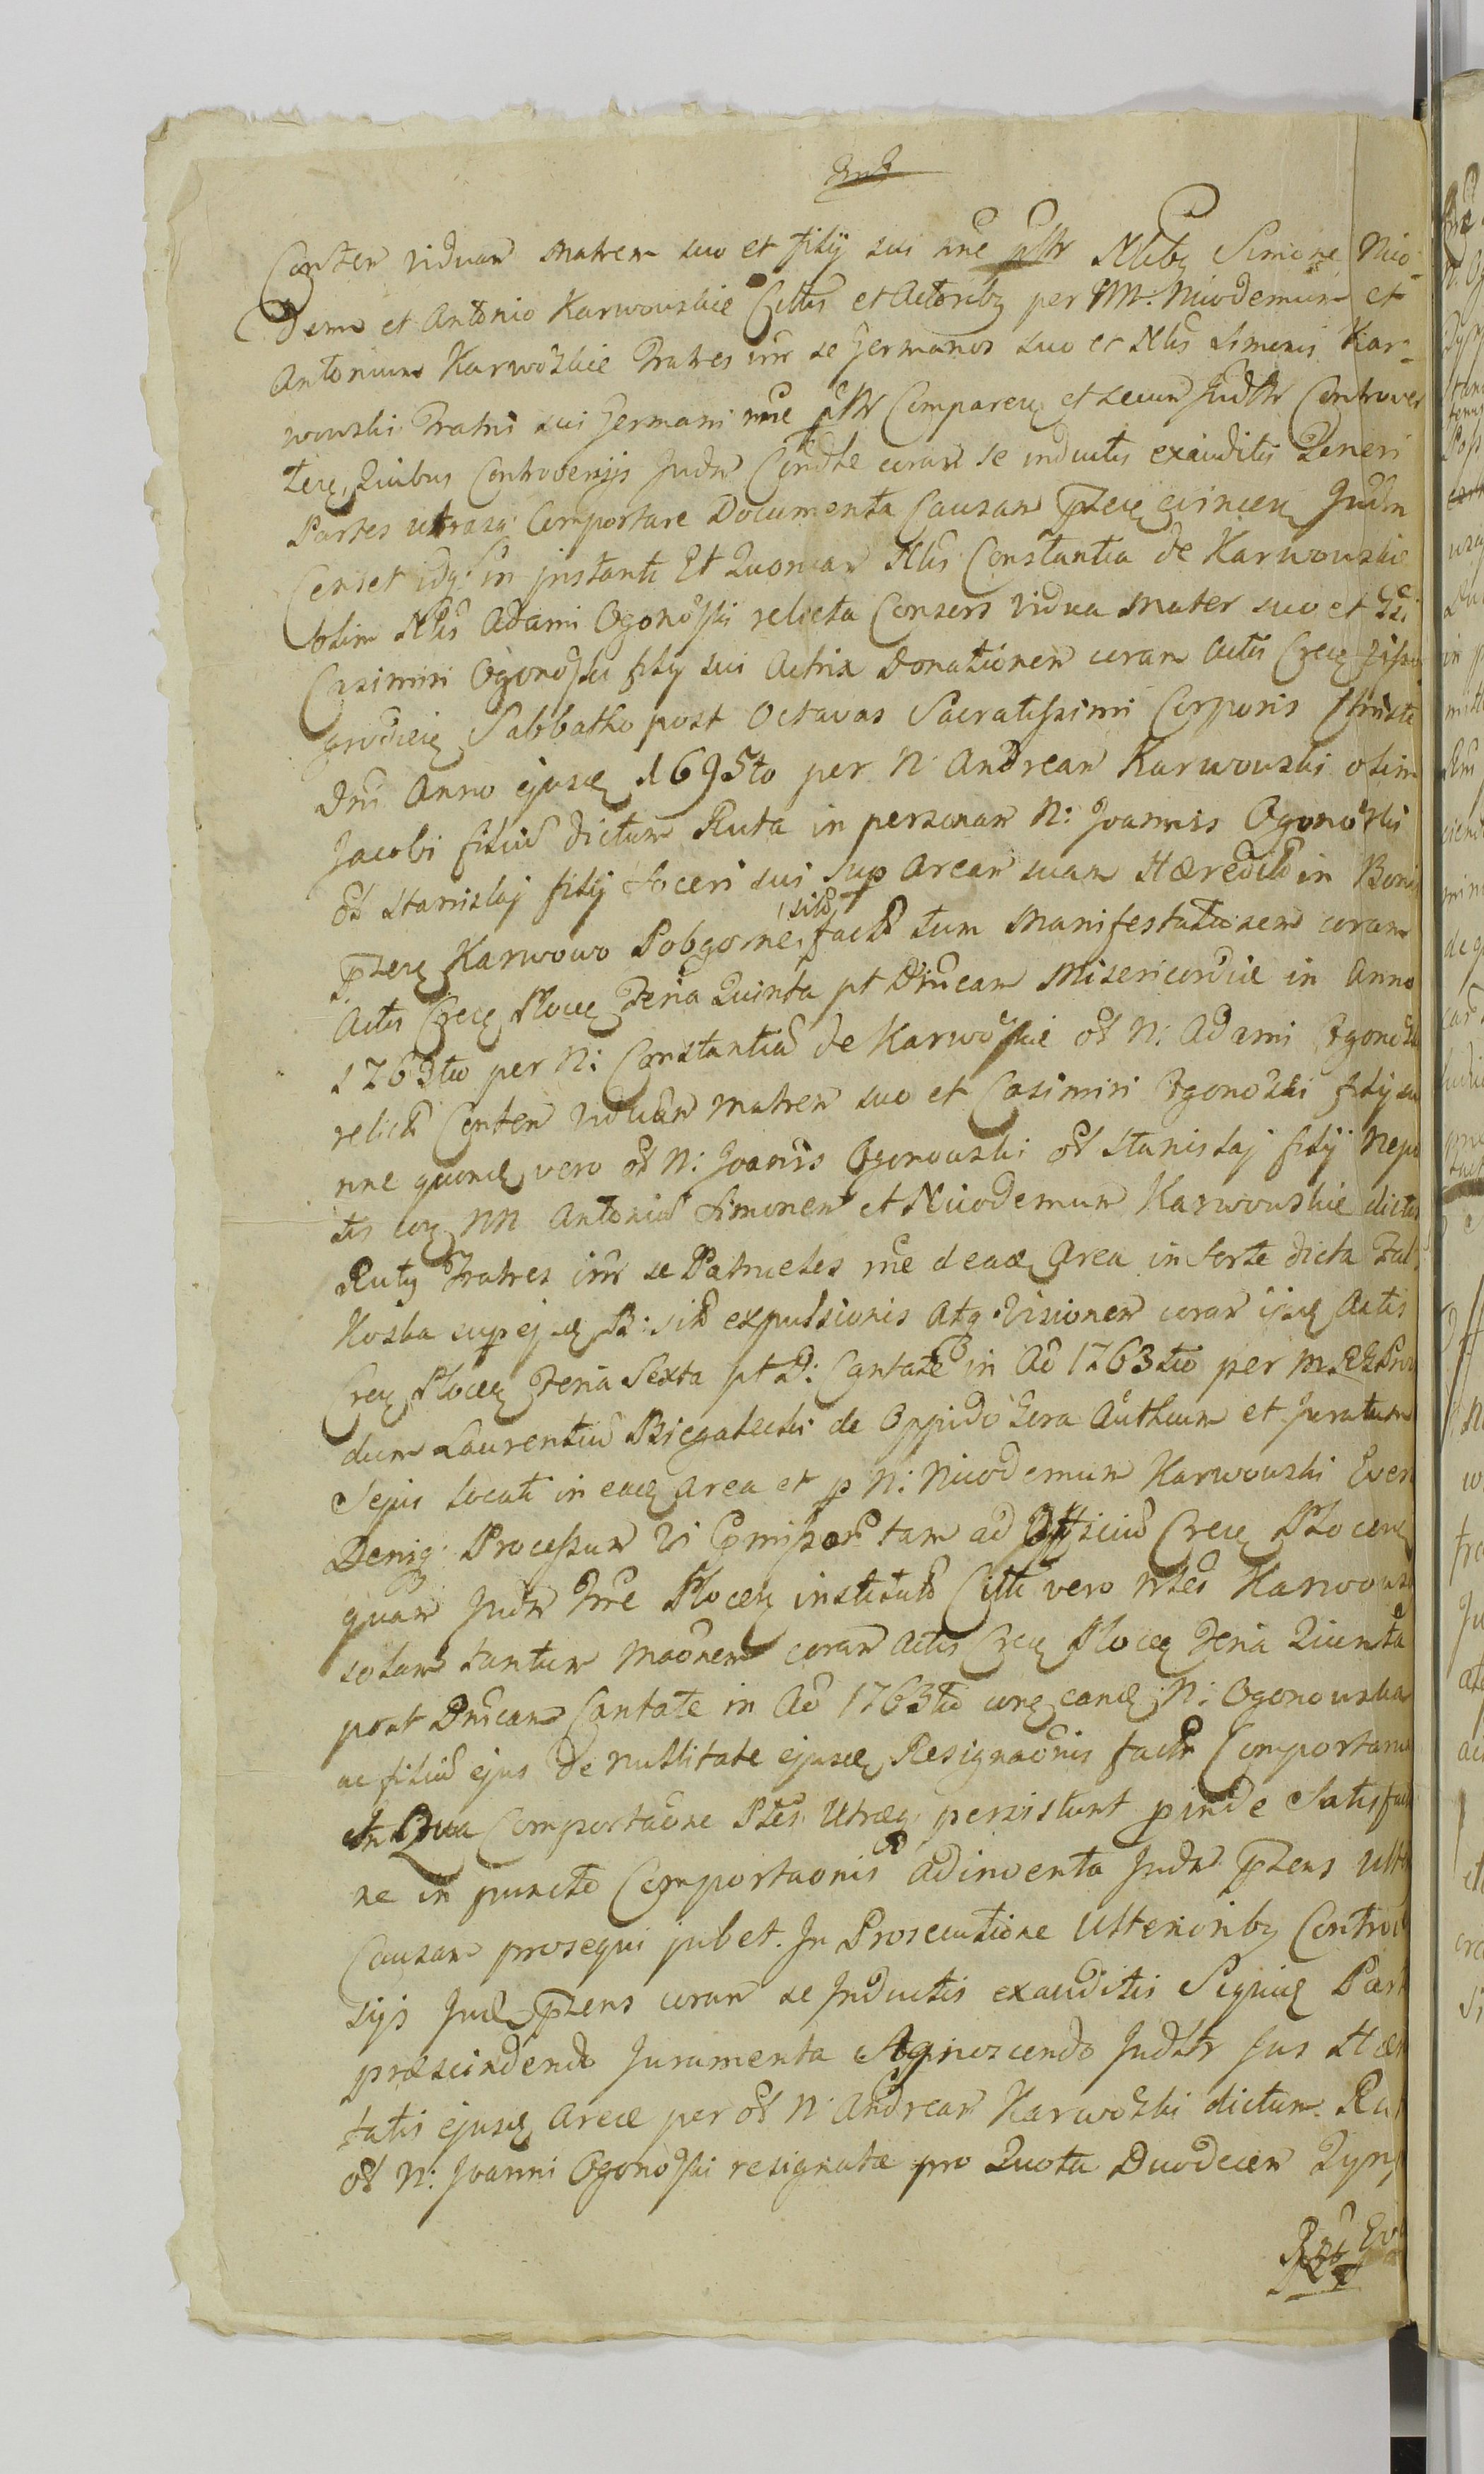 Consten viduam matrem suo et filij sui nne pstr Nlibq Simone Nico-
demo et Antonio Karwowskie Cittis et Actoribq per NN: Nicodemum et
Antonium Karwoskie Fratres intr se Germanos suo et Nlis Simonis Kar-
wowski Fratris sui Germani nne pstr Comparen et secum Judtr Controver
ten, Quibus Controversijs Judm Condle coram se inductis exauditis Teneri
Partes utrasq Comportare Documenta Causam pten evincen Judm
Censet idq in jnstanti Et Quoniam Nlis Constantia de Karwowskie
olim Nlis Adami Ogonoski relicta Consors vidua mater suo et
Casimiri Ogonoski filij sui Actrix Donationem coram Actis Crcq
grodien Sabbatho post Octavas Sacratissimi Corporis Christi
Dni Anno ejusd 1695to per N Andream Karwowski olim
Jacobi filiu dictum Ruta in personam N: Joannis Ogonoski
ol Stanislaj filij Soceri sui sup Aream suam Hæredit in Bonis
sit
pten Karwowo Podgorne fact tum Manifestationem coram
Actis Crcq Plocen Feria Quinta pt Dnicam Misericordiæ in Anno
1763tio per N: Constantia de Karwoskie ol N: Adami Ogonosk
relict Conten viduam matrem suo et Casimiri Ogonoski filij su
nne quond vero ol N: Joannis Ogonowski ol Stanislaj filij Nepo
tis NN Antoniu Simonem et Nicodemum Karwowskie dictos
Ruty Fratres intr se Patrueles rne dead Area in Sorte dicta
sup ejusd B: sit expulsionis Atq Visionem coram ijsd Actis
Crcq Plocen Feria Sexta pt D: Cantate in Ao 1763tio per
dum Laurentiu Biegalecki de Oppido Sera Authum et Juratum
Sepis locati in ead Area et p N: Nicodemum Karwowski Even
Deniq Processum Vi Comissor tam ad Officiu Crcq Plocen
quam Judm Trre Plocen institut Citti vero Nles Karwows
solam tantum Maonem coram Actis Crcq Plocen Feria Quinta
post Dnicam Cantate in Ao 1763tio cone eand N: Ogonowska
ac filiu ejus de nullitate ejusd Resignaonis factr Comportarun
In Qua Comportaone Ptes Utræq persistunt pinde Satisfac
ne in puncto Comportaonis adinventa Judm ptens Ultr
Causam prosequi jubet. In Prosecutione Ulterioribq Controv
sijs Jud ptens coram se Inductis exauditis Siquid Part
præscindendo Juramenta Agnoscendo Judtr Jus Hær
tatis ejusd Areæ per ol N Andream Karwoski dictum Rut
ol N: Joanni Ogonoski resignatæ pro Quota Duodecem Tymp